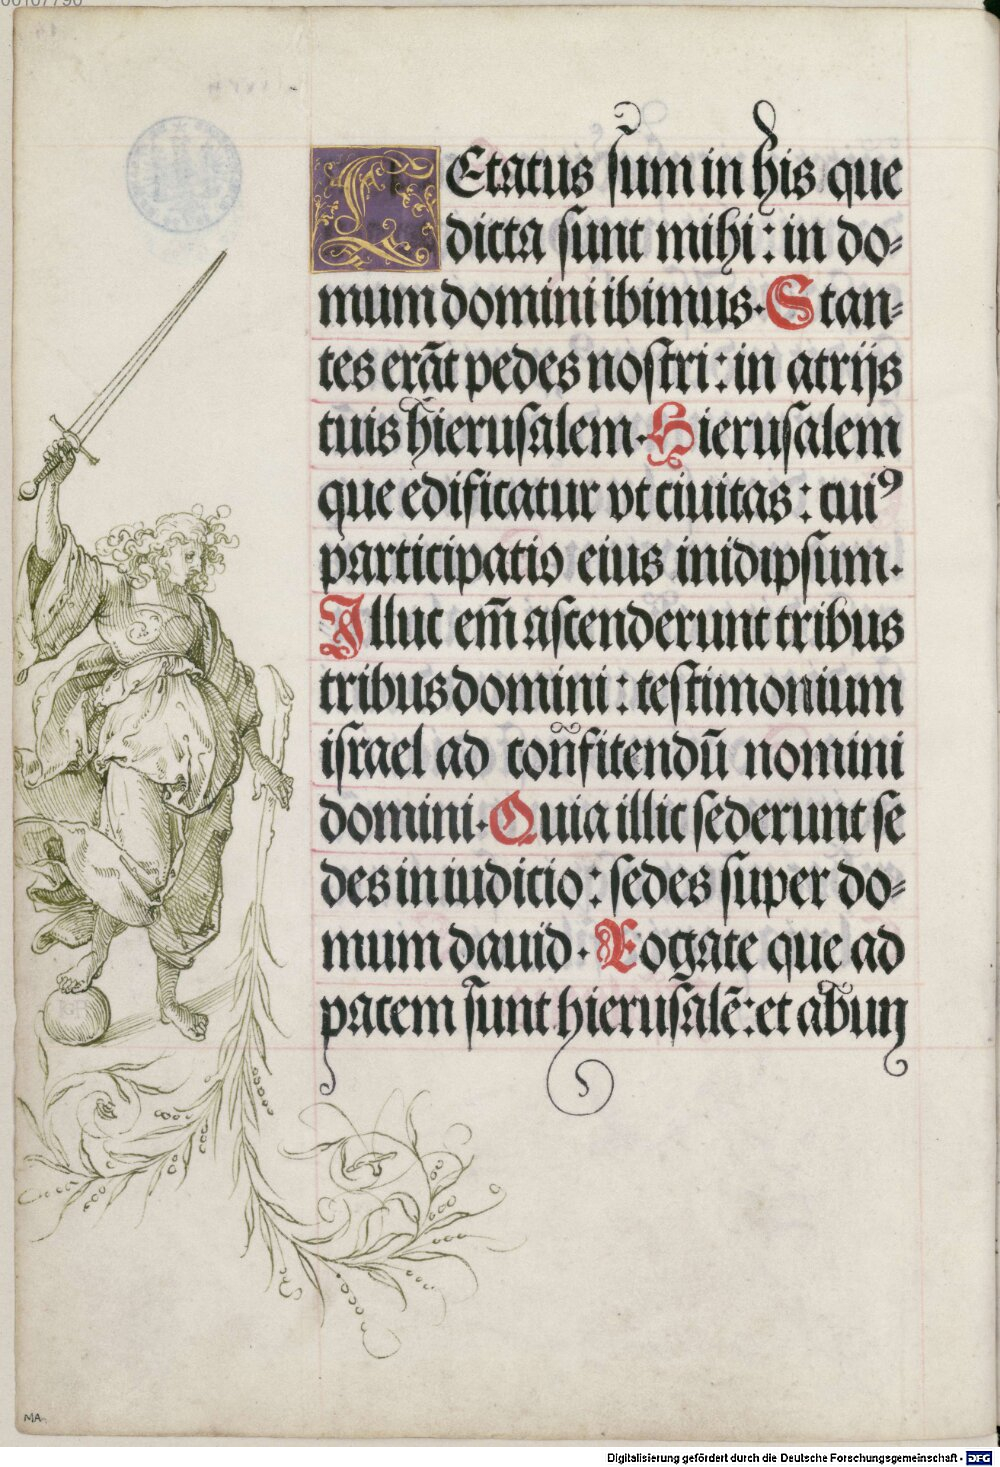 LEtatus sum in his que
dicta sunt mihi: in do-
mum domini ibimus. Stan-
tes erãt pedes nostri: in atrijs
tuis hierusalem. Hierusalem
que edificatur vt ciuitas: cuiꝰ
participatio eius inidipsum.
Illuc em̃ ascenderunt tribus
tribus domini: testimonium
israel ad con̄fitendū nomini
domini. Quia illic sederunt se
des in iudicio: sedes super do-
mum dauid. Rogate que ad
pacem sunt hierusalē: et abun
MA
Digitalisierung gefördert durch die Deutsche Forschungsgemeinschaft - DFG